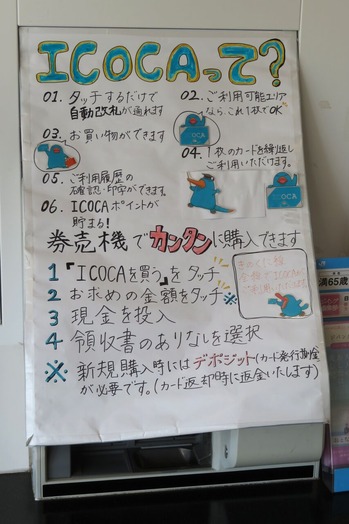 ICOCAって?
01. タッチするだけで
自動改札が通れます
02. ご利用可能エリア
なら、これ1枚でOK
03. お買い物ができます
04. 1枚のカードを繰り返し
ご利用いただけます。
05. ご利用履歴の
確認・印字ができます。
06. ICOCAポイントが
貯まる!
券売機でカンタンに購入できます
1「ICOCAを買う」をタッチ
2 お求めの金額をタッチ※
3 現金を投入
4 領収書のありなしを選択
※ 新規購入時にはデポジット(カード発行預り金)
が必要です。(カード返却時に返金いたします)
きのくに線
満65歳